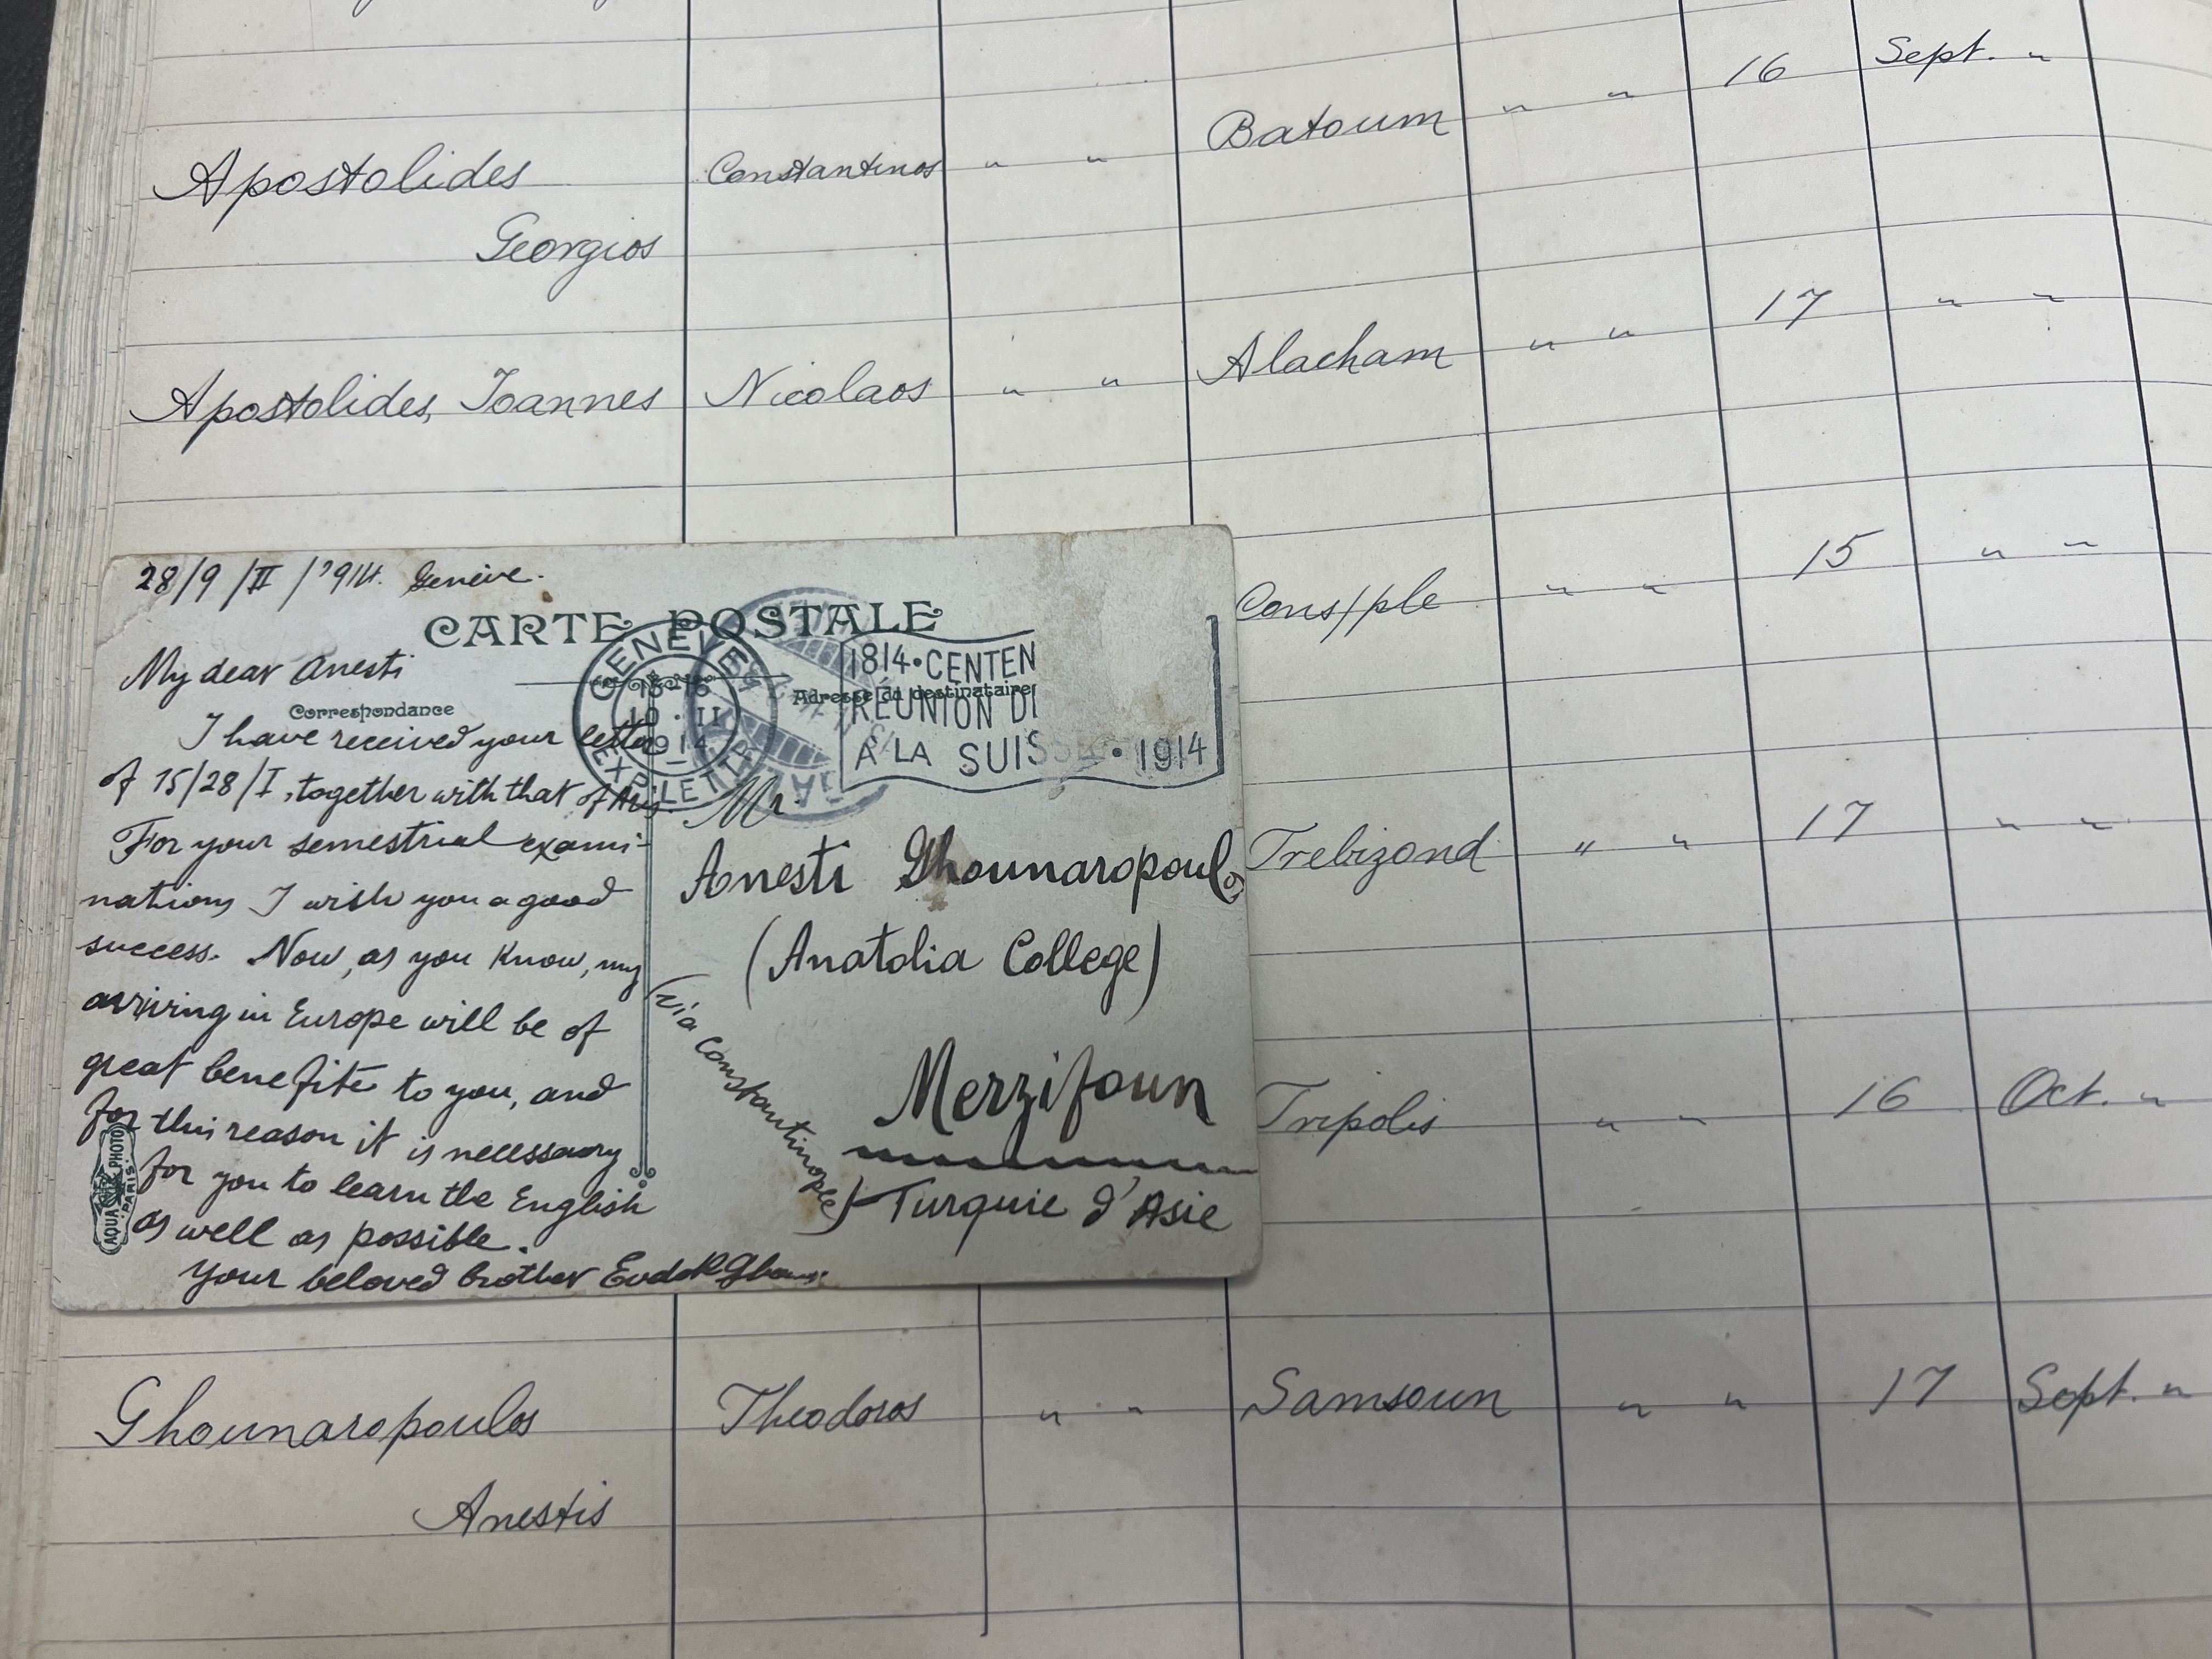 16 Sept. "
Apostolides Constantinos " " Batoum " "
Georgios
17 " "
Apostolides, Ioannes Nicolaos " " Alacham " "
15 " "
Cons/ple " "
Trebizond " " 17 " "
Tripolis " " 16 Oct. "
Ghounaropoulos Theodoros " " Samsoun " " 17 Sept. "
Anestis
28/9 /II /1914. Genève.
CARTE POSTALE
My dear Anesti
Correspondance
I have received your letter
of 15/28/I, together with that of Aug.
For your semestrial exami-
nations I wish you a good
success. Now, as you know, my
arriving in Europe will be of
great benefite to you, and
for this reason it is necessary
for you to learn the English
as well as possible.
Your beloved brother
Adresse du destinataire
GENEVE
10·II
1914
EXP. LETTR
1814•CENTEN
REUNION DE
A LA SUISSE • 1914
Mr.
Anesti Ghounaropoulo
(Anatolia College)
Merzifoun
(via Constantinople)
Turquie d'Asie
AQUA PHOTO
PARIS